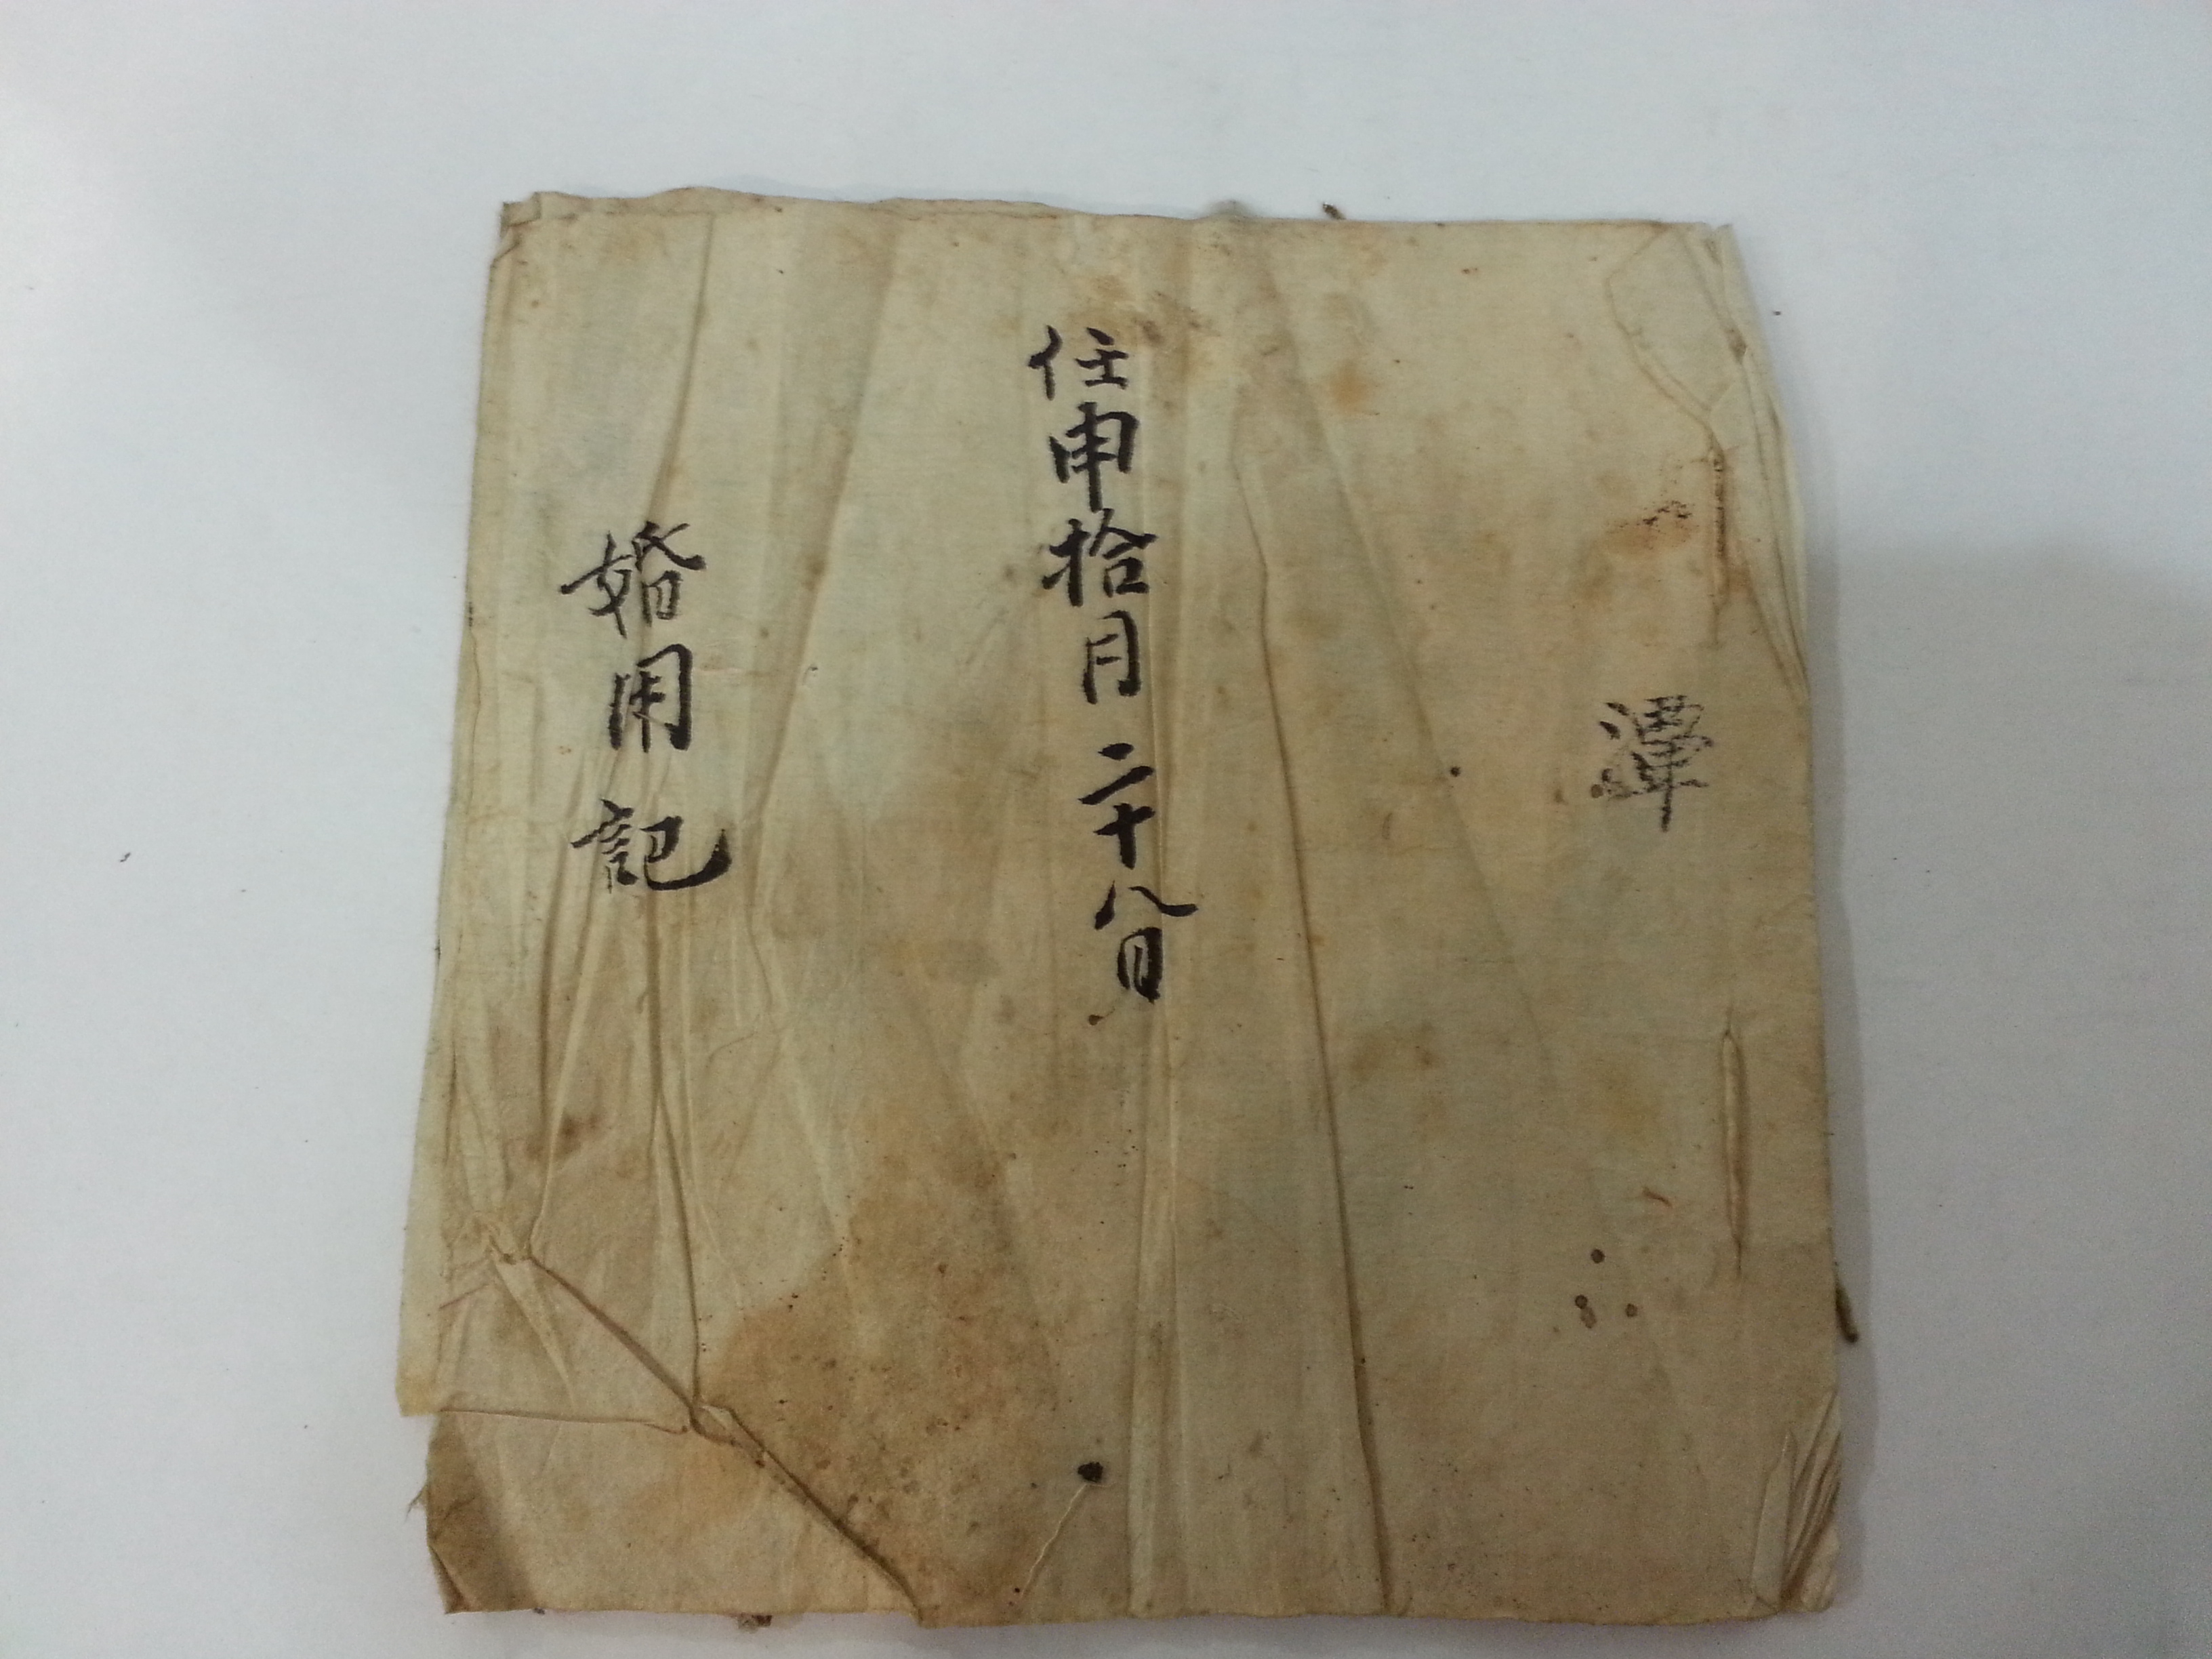 潭
任申拾月二十八日
婚用記